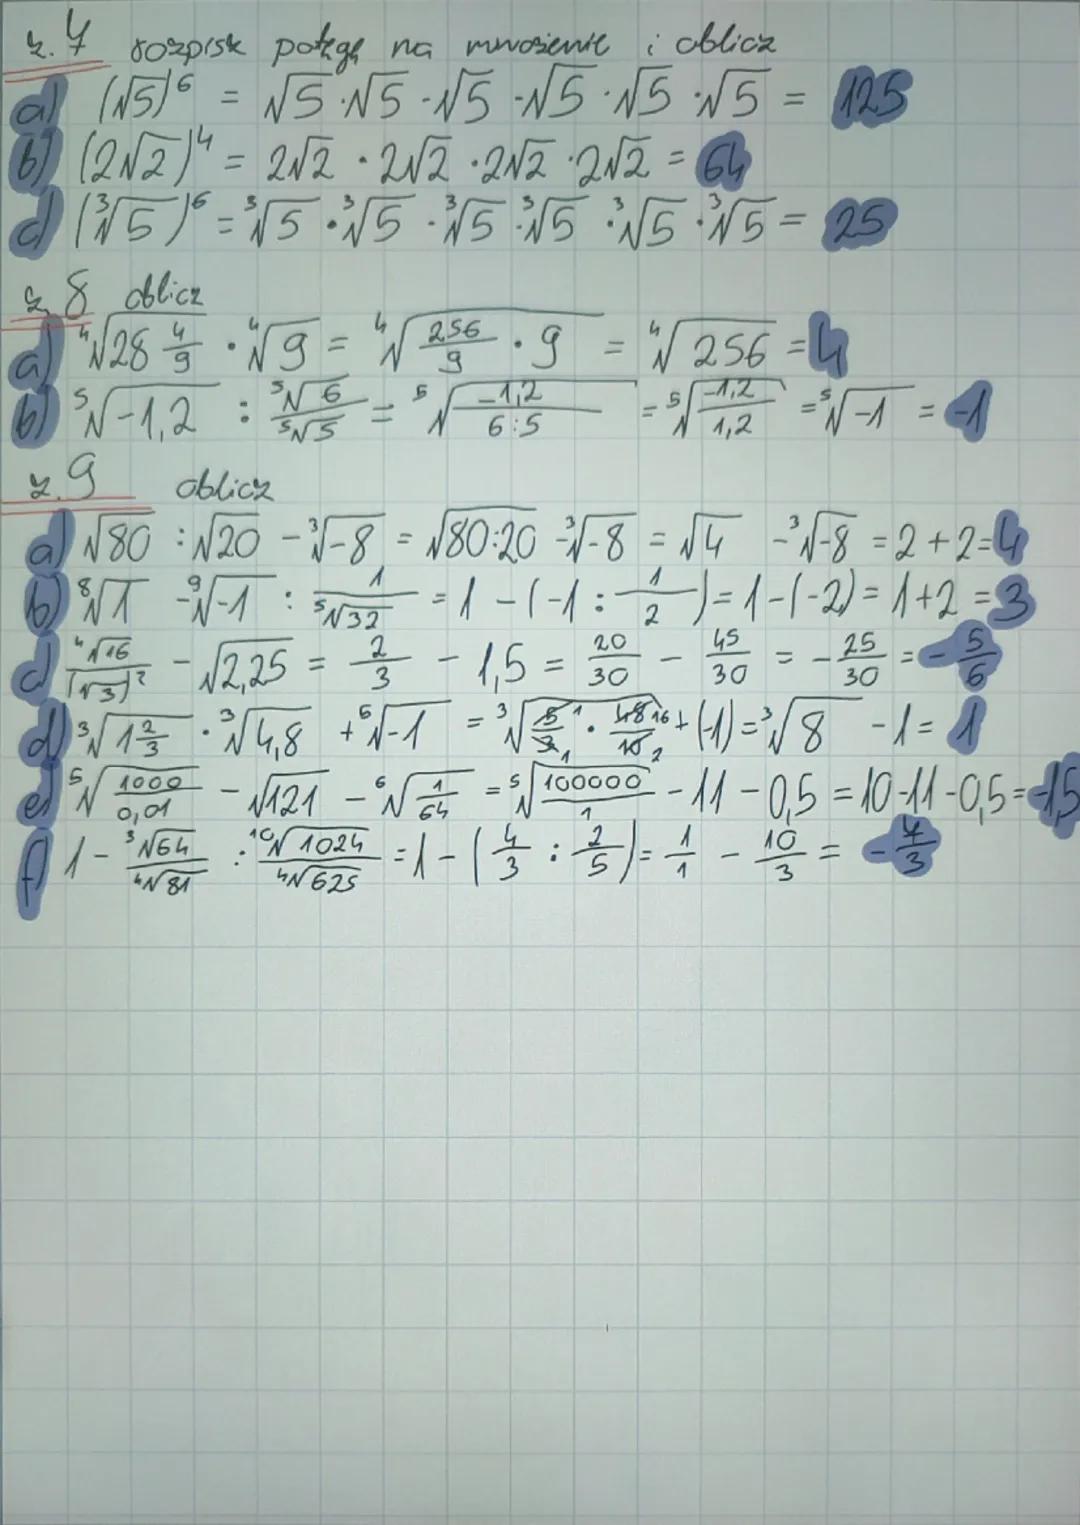 z.7 rozpisk potęgę na mnożenie i oblicz
a) (√5)⁶ = √5 · √5 · √5 · √5 · √5 · √5 = 125
b) (2√2)⁴ = 2√2 · 2√2 · 2√2 · 2√2 = 64
c) (³√5)⁶ = ³√5 · ³√5 · ³√5 · ³√5 · ³√5 · ³√5 = 25
z.8 oblicz
a) ⁴√(28 4/9) · ⁴√9 = ⁴√(256/9 · 9) = ⁴√256 = 4
b) ⁵√-1,2 : ⁵√6/⁵√5 = ⁵√(-1,2/6:5) = ⁵√(-1,2/1,2) = ⁵√-1 = -1
z.9 oblicz
a) √80 : √20 - ³√-8 = √80:20 - ³√-8 = √4 - ³√-8 = 2+2=4
b) ⁸√1 - ⁹√-1 : 1/⁵√32 = 1 - (-1 : 1/2) = 1-(-2) = 1+2 = 3
c) ⁴√16/(√3)² - √2,25 = 2/3 - 1,5 = 20/30 - 45/30 = -25/30 = -5/6
d) ³√(1 2/3) · ³√4,8 + ⁵√-1 = ³√(5/3 1 1 · 48/10 16 2) + (-1) = ³√8 - 1 = 1
e) ⁵√(1000/0,01) - √121 - ⁶√(1/64) = ⁵√(100000/1) - 11 - 0,5 = 10-11-0,5=-1,5
f) 1 - ³√64/⁴√81 : ¹⁰√1024/⁴√625 = 1 - (4/3 : 2/5) = 1/1 - 10/3 = -7/3